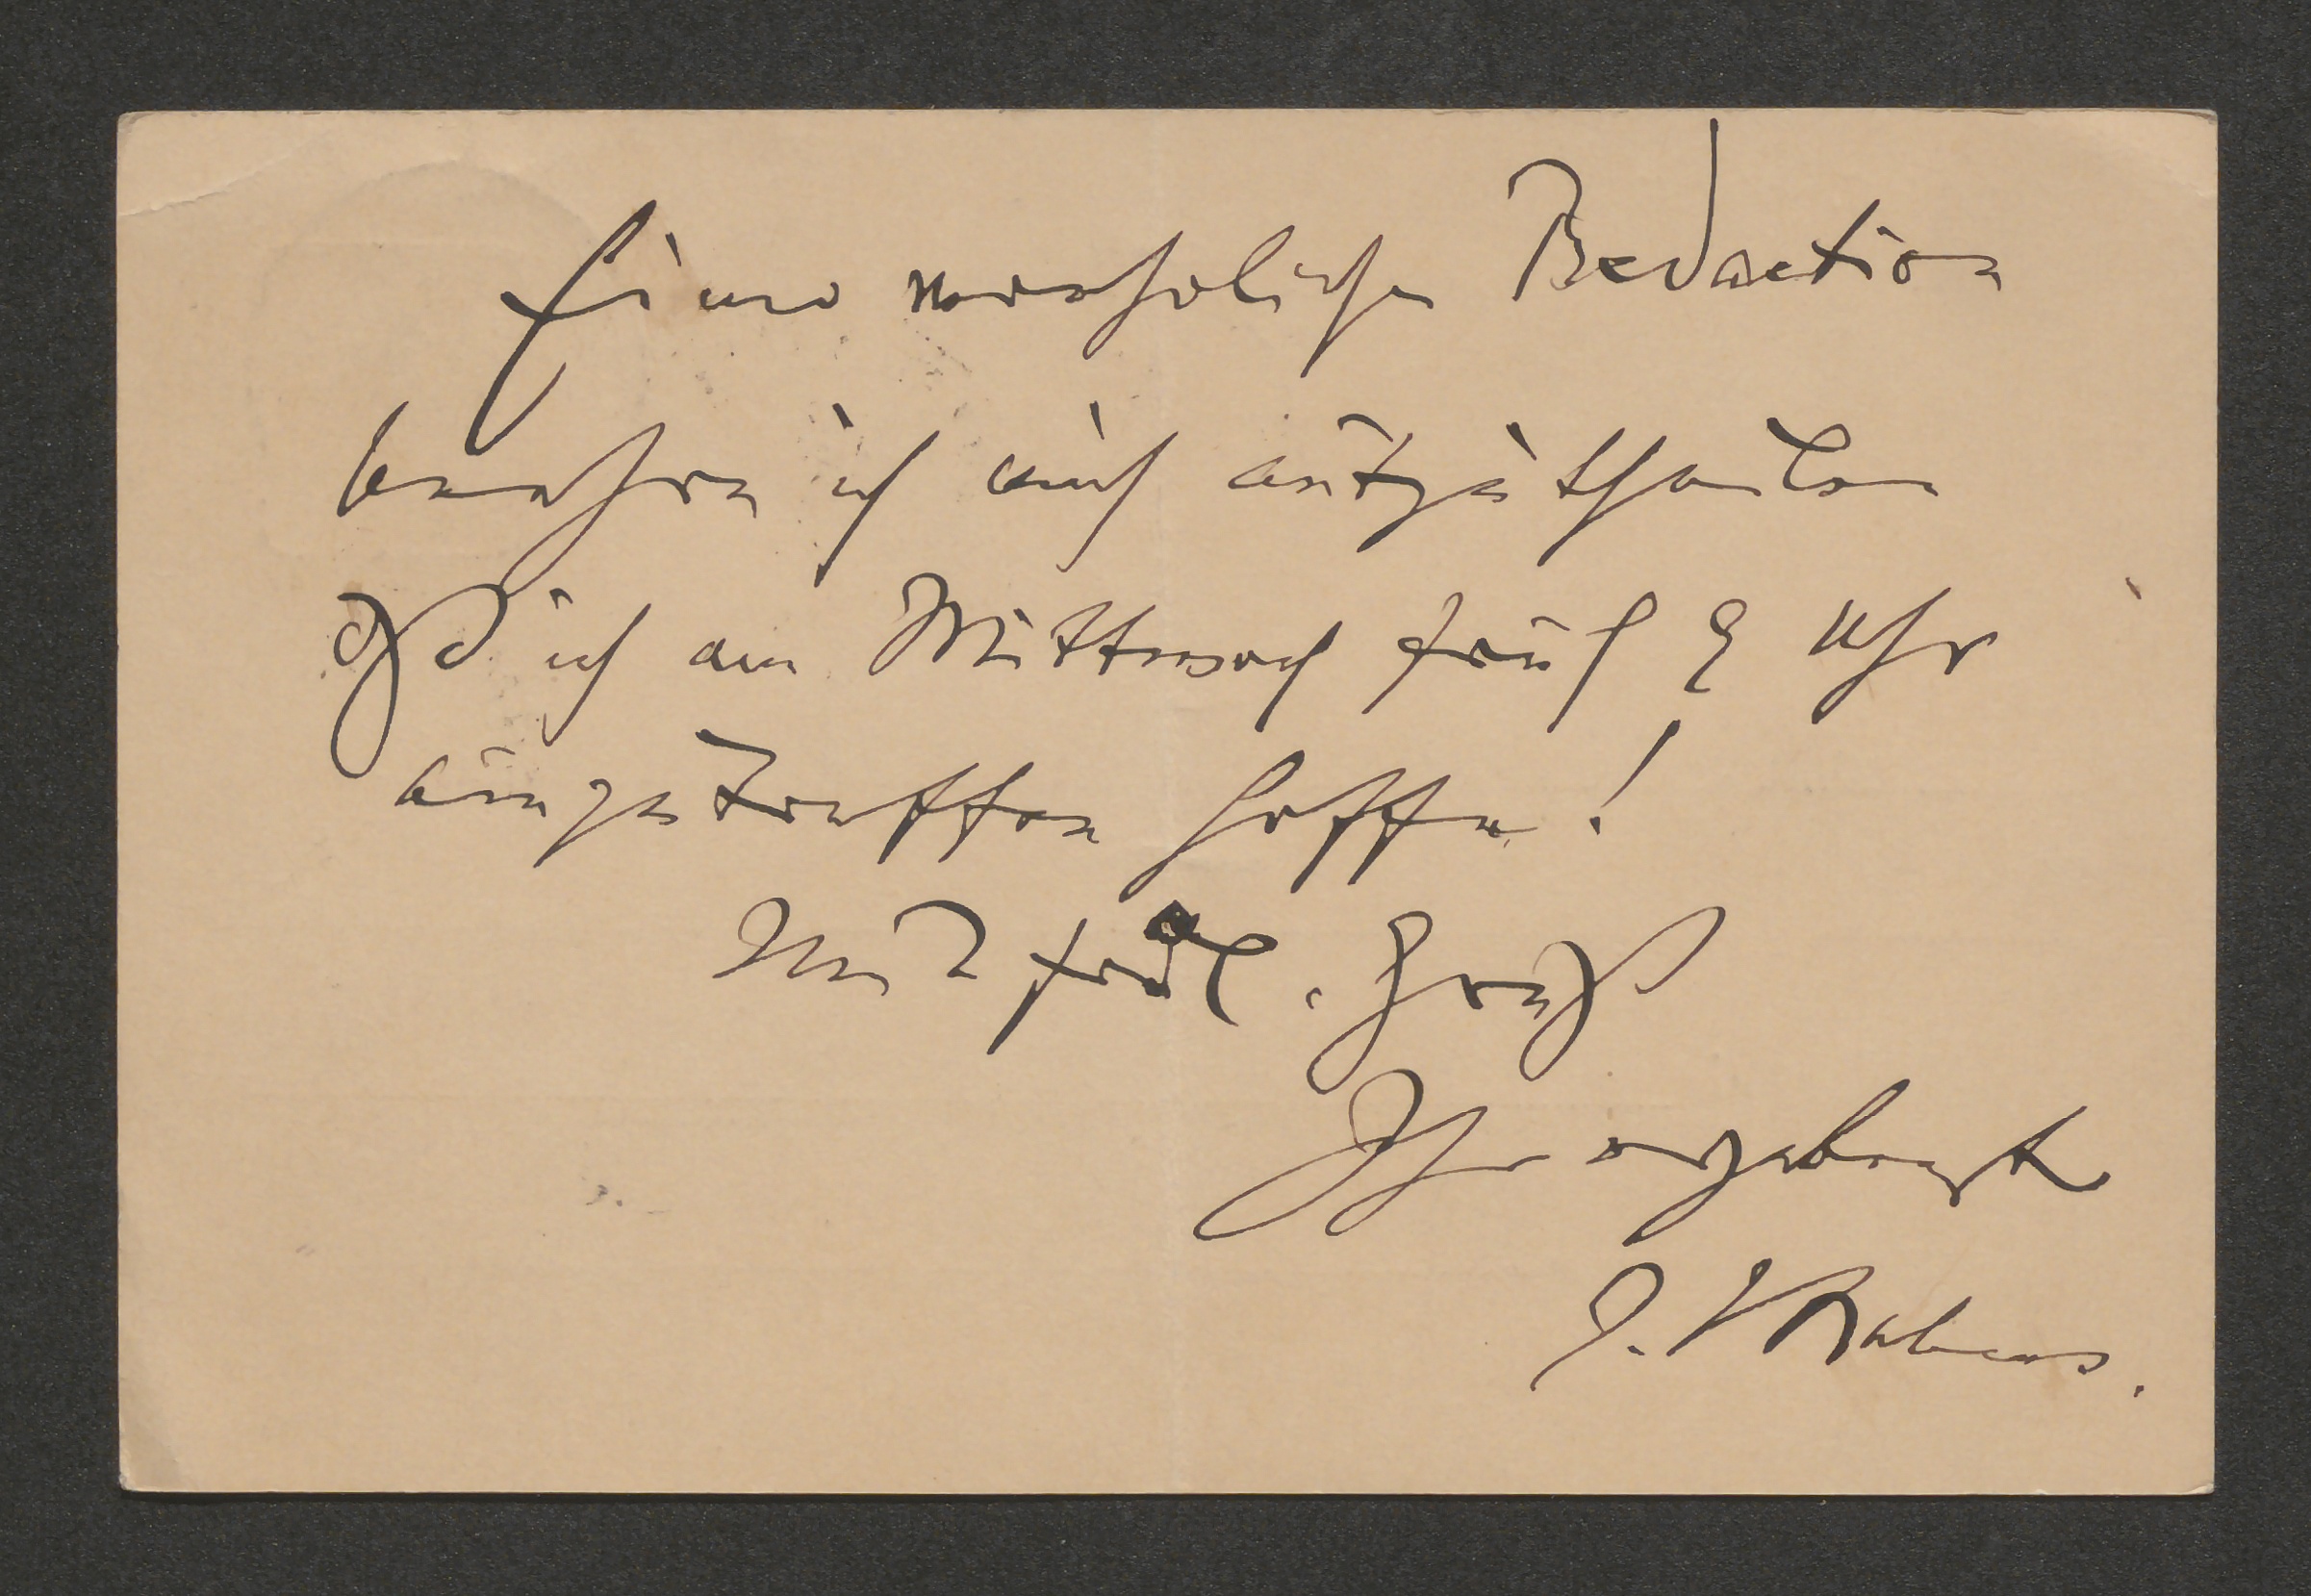 Einer verehrlichen Redaction
beehre ich mich mitzutheilen
daß ich am Mittwoch früh Uhr
einzutreffen hoffe!
Mit frdl. Gruß
Ihr ergebenst